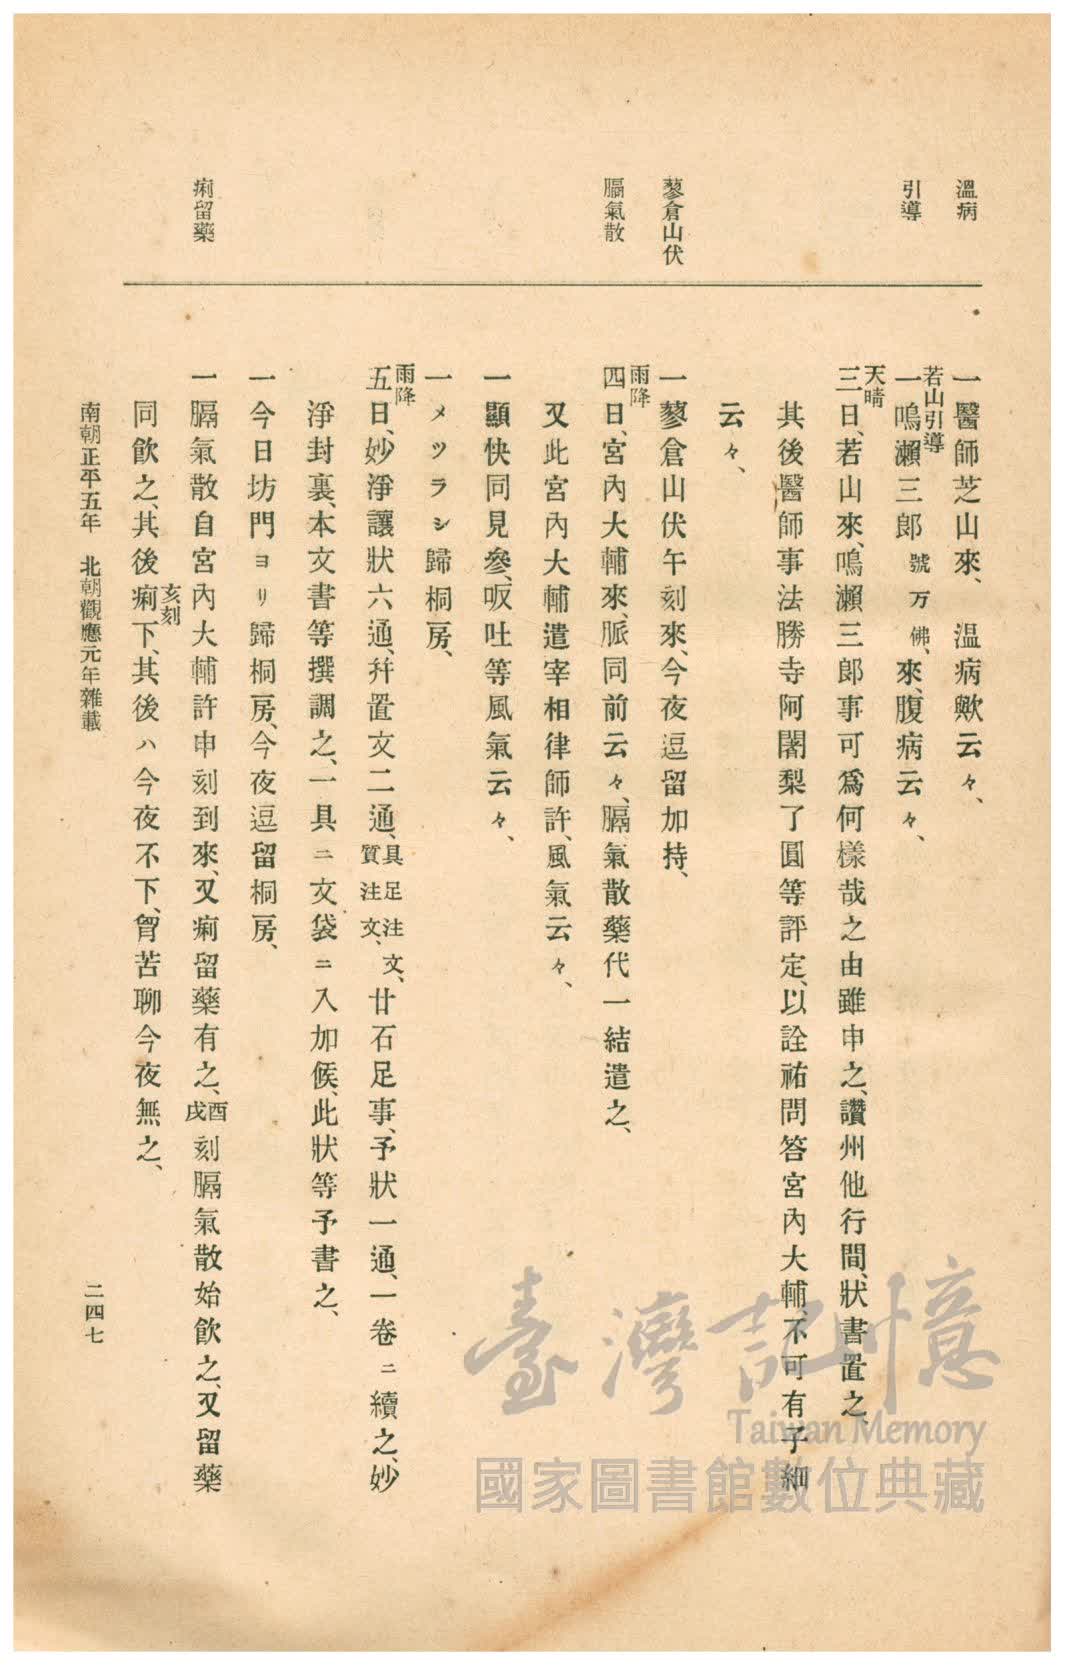 溫病
引導
蓼倉山伏
膈氣散
痢留藥
一醫師芝山來、溫病歟云々、
若山引導
一鳴瀨三郎號万佛、來、腹病云々、
天晴
三日、若山來、鳴瀨三郎事可爲何樣哉之由雖申之、讚州他行間、狀書置之、
其後醫師事法勝寺阿闍梨了圓等評定、以詮祐問答宮內大輔、不可有子細
云々、
一蓼倉山伏午刻來、今夜逗留加持、
雨降
四日、宮內大輔來、脈同前云々、膈氣散藥代一結遣之、
又此宮內大輔遣宰相律師許、風氣云々、
一顯快同見參、㕮吐等風氣云々、
一メツラシ歸桐房、
雨降
五日、妙淨讓狀六通、幷置文二通、具足注文、質注文、廿石足事、予狀一通、一卷ニ續之、妙
淨封裏、本文書等撰調之、一具ニ文袋ニ入加候、此狀等予書之、
一今日坊門ヨリ歸桐房、今夜逗留桐房、
一膈氣散自宮內大輔許申刻到來、又痢留藥有之、酉戌刻膈氣散始飮之、又留藥
亥刻
同飮之、其後痢下、其後ハ今夜不下、胷苦聊今夜無之、
南朝正平五年 北朝觀應元年雜載
二四七
臺灣記憶
Taiwan Memory
國家圖書館數位典藏